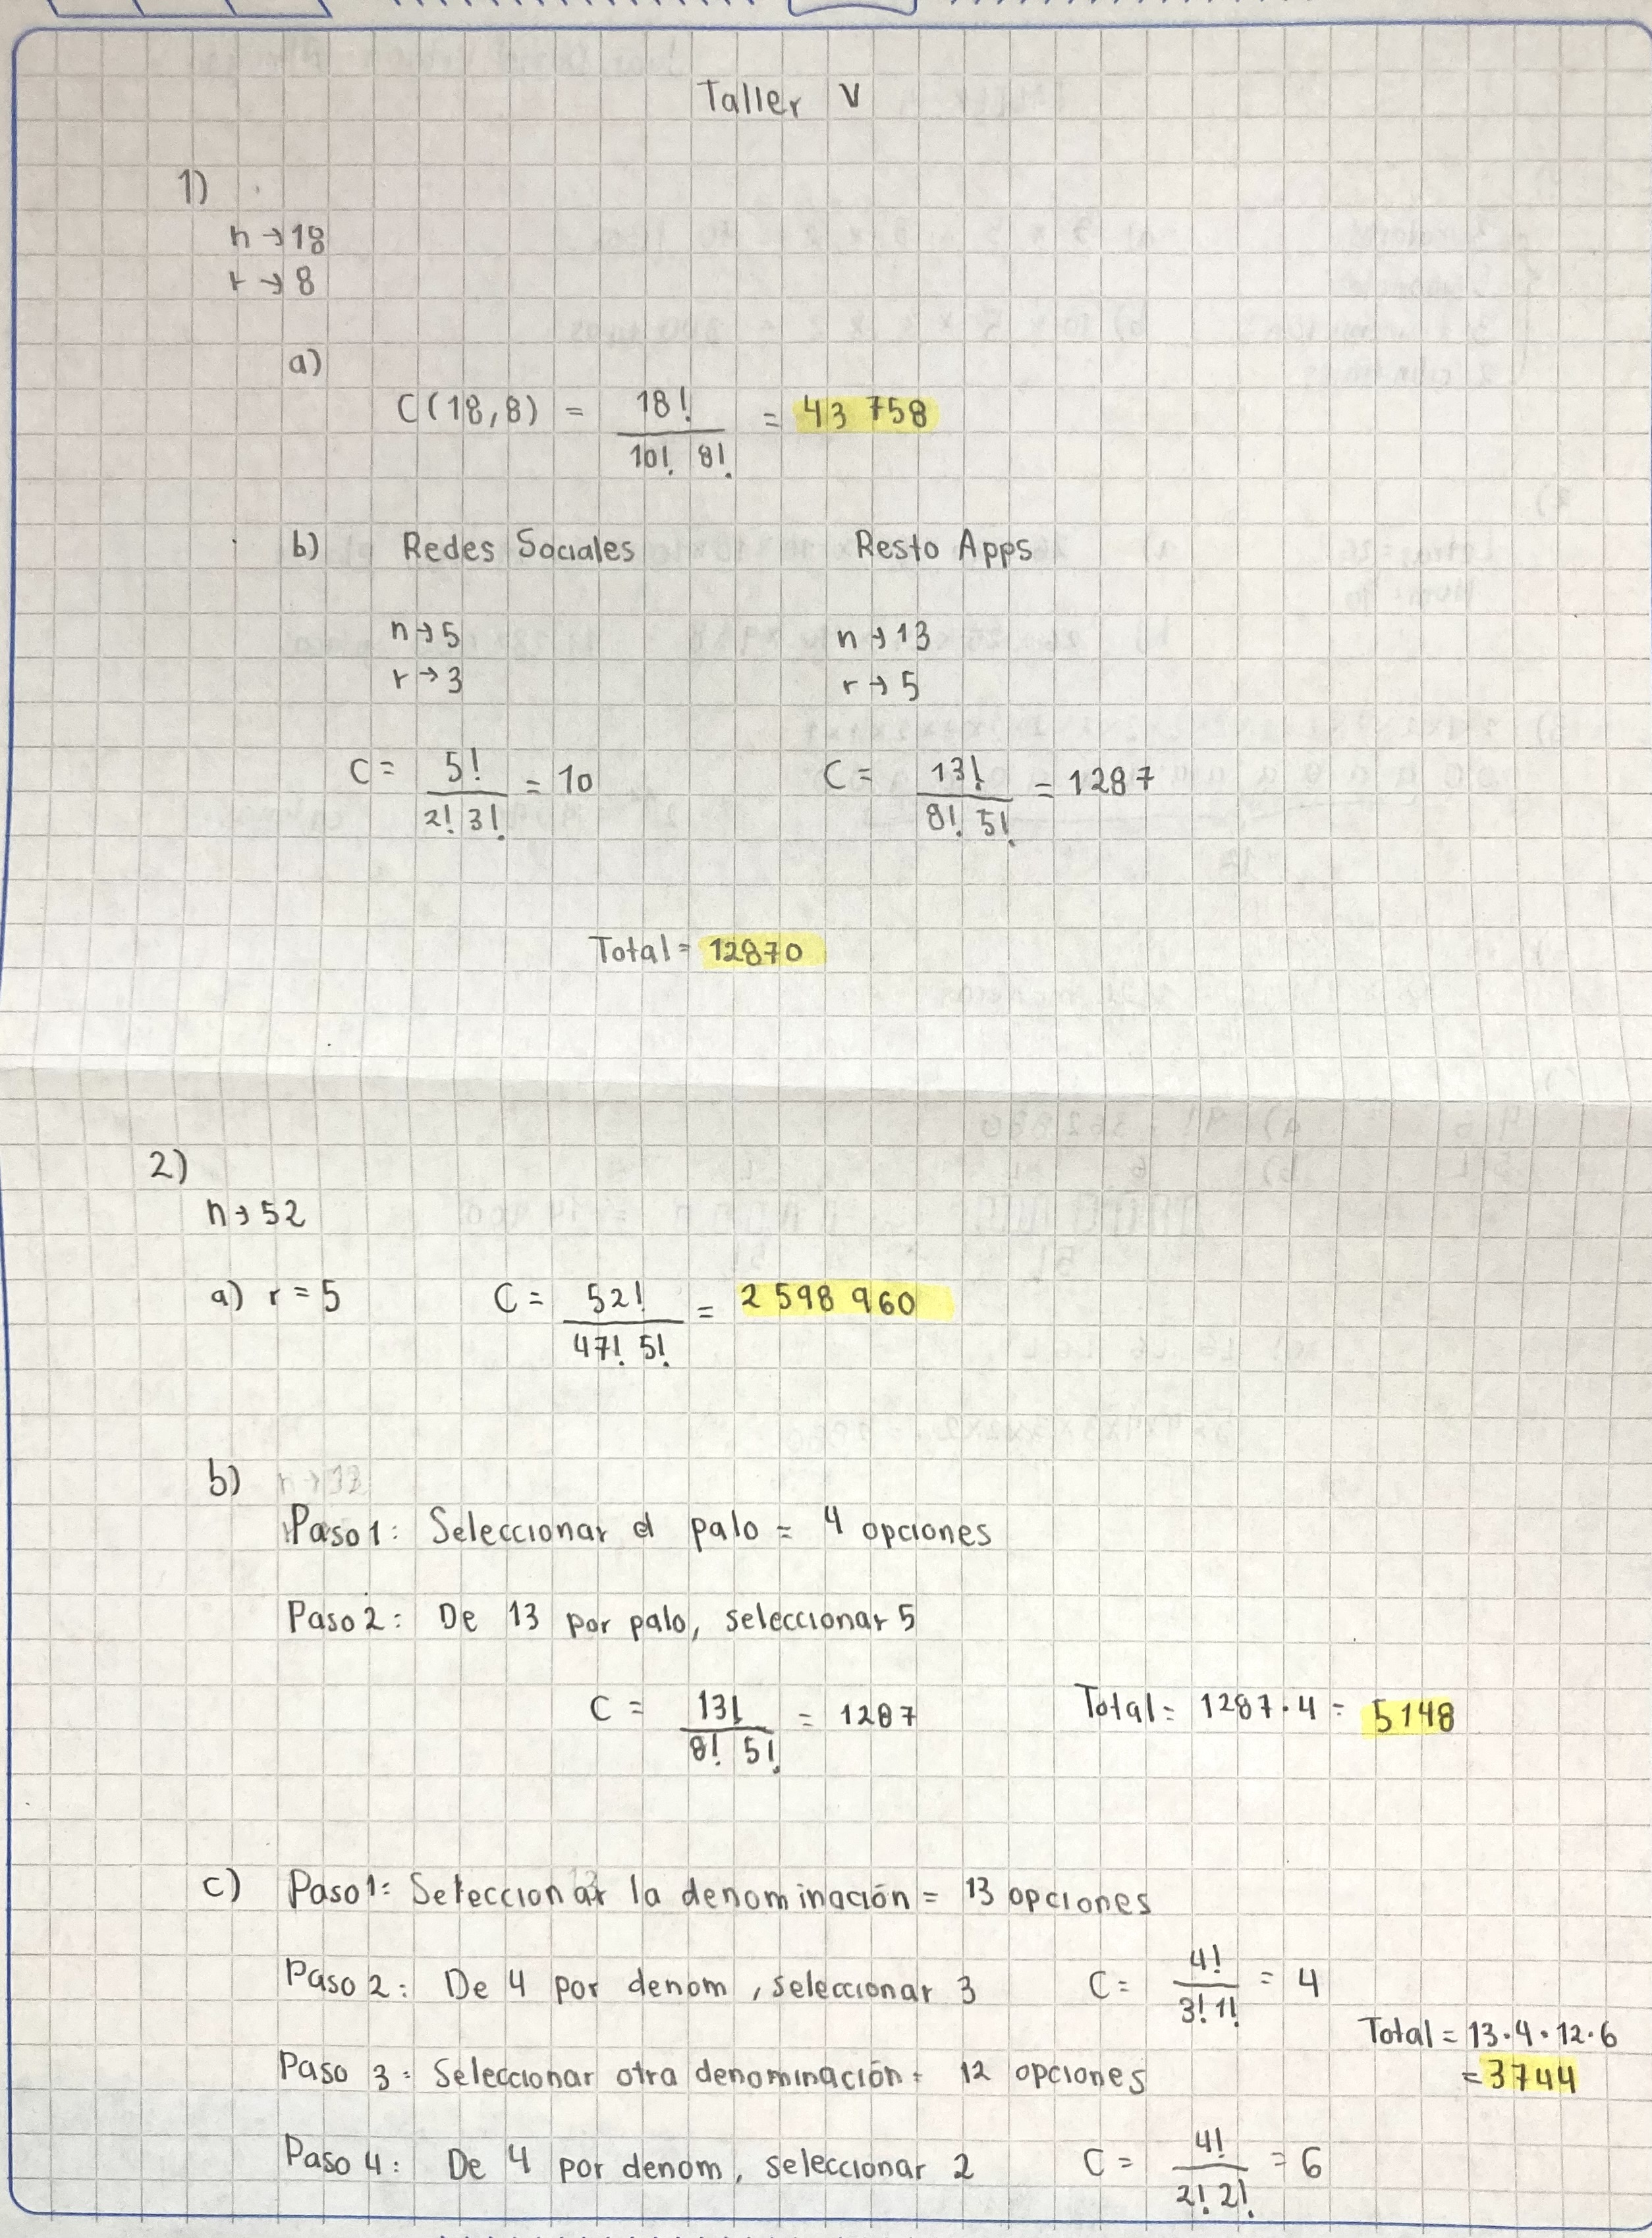 Taller V
1)
n → 18
r → 8
a)
C(18,8) = 18! / 10! 8! = 43 758
b) Redes Sociales Resto Apps
n → 5 n → 13
r → 3 r → 5
C = 5! / 2! 3! = 10 C = 13! / 8! 5! = 1287
Total = 12870
2)
n → 52
a) r = 5 C = 52! / 47! 5! = 2 598 960
b)
Paso 1: Seleccionar el palo = 4 opciones
Paso 2: De 13 por palo, seleccionar 5
C = 13! / 8! 5! = 1287 Total = 1287 · 4 = 5148
c) Paso 1: Seleccionar la denominación = 13 opciones
Paso 2: De 4 por denom, seleccionar 3 C = 4! / 3! 1! = 4
Total = 13 · 4 · 12 · 6
Paso 3: Seleccionar otra denominación = 12 opciones
= 3744
Paso 4: De 4 por denom, seleccionar 2 C = 4! / 2! 2! = 6